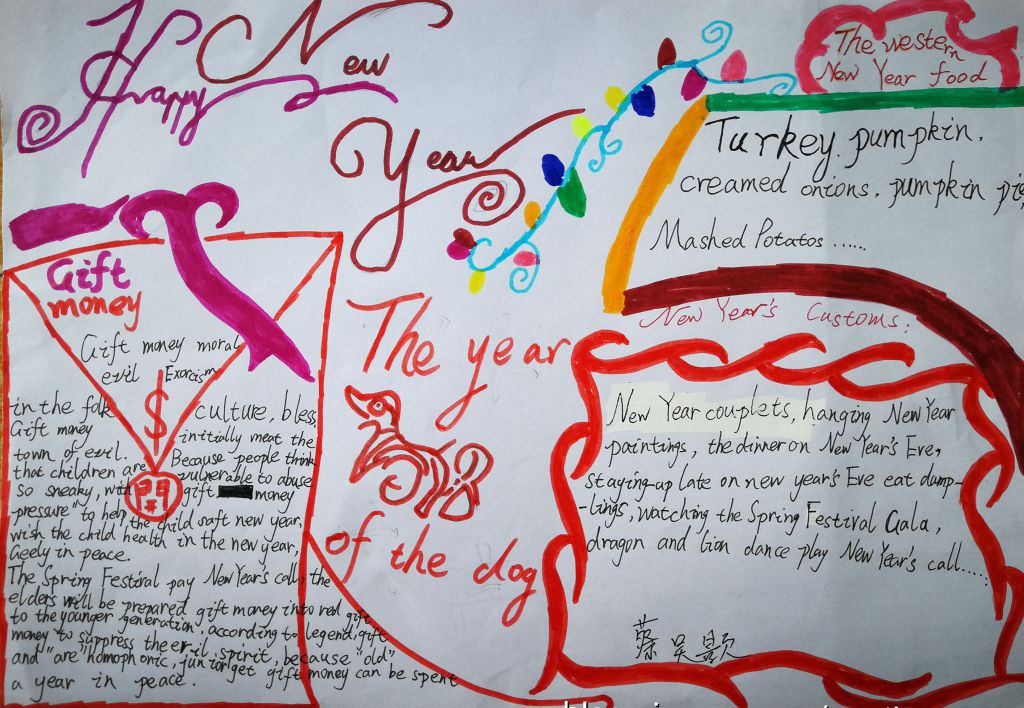 Happy New
Year
The western
New Year food
Turkey. pumpkin.
creamed onions. pumpkin pie,
Mashed Potatos ......
Gift
money
Gift money moral
evil Exorcism
$
in the folk culture, bless
Gift money initially meat the
town of evil. Because people think
that children are vulnerable to abuse
so sneaky, with gift money
-pressure" to help the child saft new year,
wish the child health in the new year,
Geely in peace.
The Spring Festival pay New Year's call, the
elders will be prepared gift money into red gift
to the younger generation, according to legend, gift
money to suppress the evil spirit, because "old"
and "are" homophonic, junior get gift money can be spent
a year in peace.
The year
of the dog
New Year's Customs:
New Year couplets, hanging New Year
paintings, the dinner on New Year's Eve,
staying-up late on new year's Eve eat dump-
-lings, watching the Spring Festival Gala,
dragon and lion dance play New Year's call.....